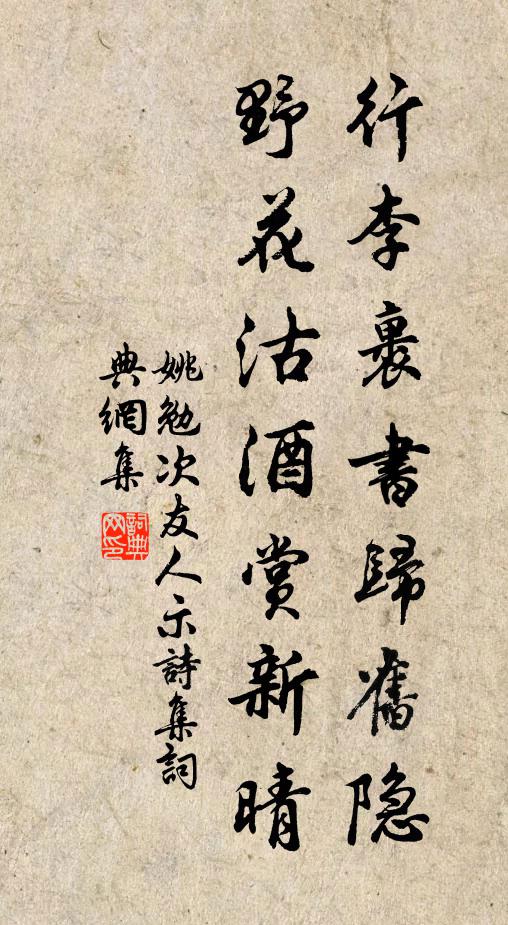 行李裹書歸舊隐
野花沽酒賞新晴
姚勉次友人示詩集詞
典網集
詞典
网印